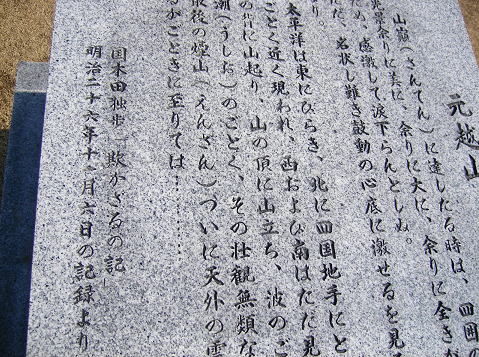 元越山
山巓(さんてん)に達したる時は、四囲の
光景余りに美に、余りに大に、余りに全きが
ため、感激して涙下らんとしぬ。
ただ、名状し難き鼓動の心底に激せるを見
り。
太平洋は東にひらき、北に四国地手にと
ごとく近く現われ、西および南はただ見
の背に山起り、山の頂に山立ち、波のご
潮(うしお)のごとく、その壮観無類な
最後の煙山(えんざん)ついに天外の雲
るがごときに至りては………
国木田独歩「欺かざるの記」
明治二十六年十一月六日の記録より